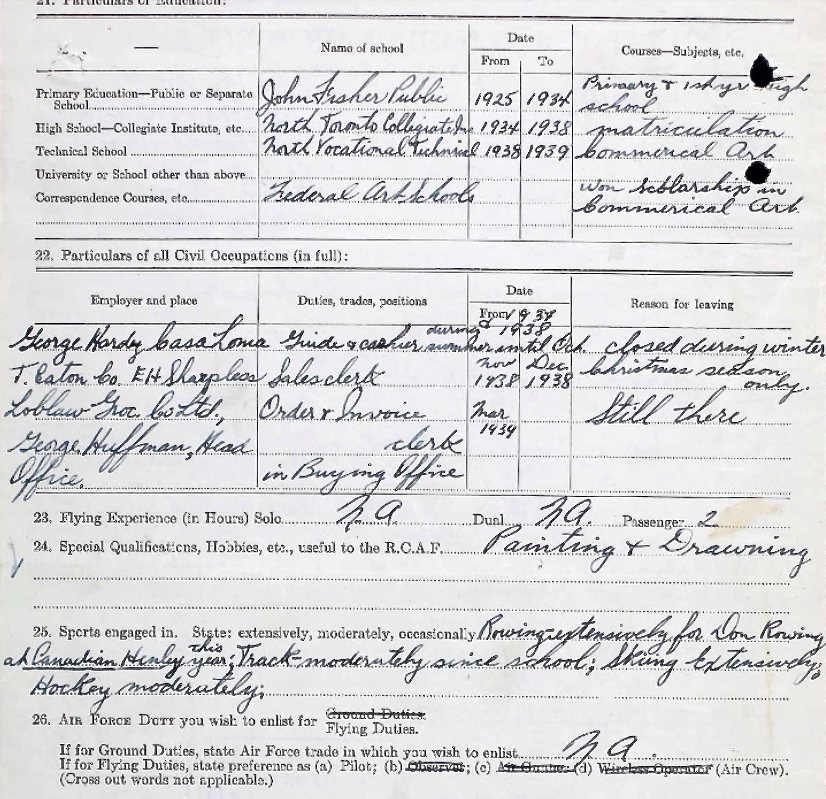 21. Particulars of Education:
Name of school
Date
From To
Courses—Subjects, etc.
Primary Education—Public or Separate School John Fisher Public 1925 1934 Primary & 1st yr High school
High School—Collegiate Institute, etc. North Toronto Collegiate Ins 1934 1938 matriculation
Technical School North Vocational Technical 1938 1939 Commerical Art
University or School other than above
Correspondence Courses, etc. Federal Art Schools won scholarship in Commerical Art.
22. Particulars of all Civil Occupations (in full):
Employer and place Duties, trades, positions Date Reason for leaving
From 1937
George Hardy Casa Loma Guide & cashier during summer 1938 until Oct. closed during winter
T. Eaton Co. EH Sharpless Sales clerk Nov 1938 Dec. 1938 Christmas season only.
Loblaw Groc. Co Ltd., Order & Invoice Mar 1939 Still there
George Huffman, Head clerk
Office. in Buying Office
23. Flying Experience (in Hours) Solo N.A. Dual N.A. Passenger 2
24. Special Qualifications, Hobbies, etc., useful to the R.C.A.F. Painting & Drawning
25. Sports engaged in. State: extensively, moderately, occasionally Rowing-extensively for Don Rowing
at Canadian Henley this year; Track-moderately since school; Skiing Extensively;
Hockey moderately;
26. AIR FORCE DUTY you wish to enlist for Ground Duties.
Flying Duties.
If for Ground Duties, state Air Force trade in which you wish to enlist N.A.
If for Flying Duties, state preference as (a) Pilot; (b) Observer; (c) Air Gunner (d) Wireless Operator (Air Crew).
(Cross out words not applicable.)